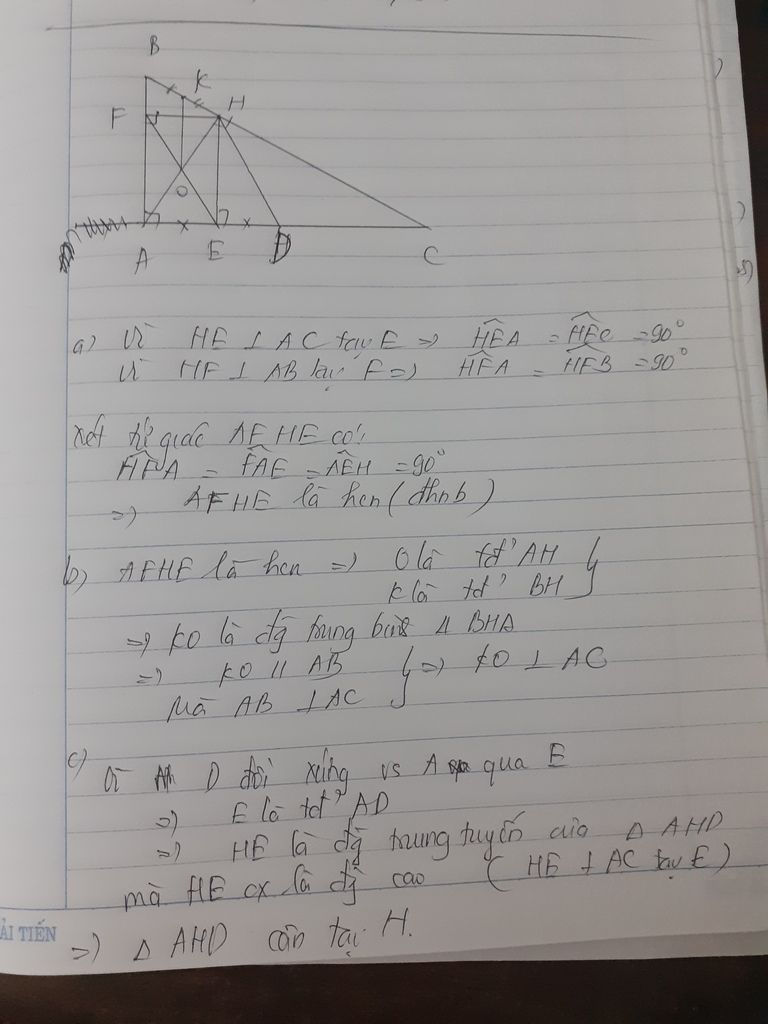 B
K
F
H
O
A
E
D
C
a) Vì HE ⊥ AC tại E => HÊA = HÊC = 90°
Vì HF ⊥ AB tại F => HF̂A = HF̂B = 90°
Xét tứ giác AFHE có:
HF̂A = FÂE = AÊH = 90°
=> AFHE là hcn (dhnb)
b) AFHE là hcn => O là tđ' AH
K là tđ' BH }
=> KO là đg trung bình Δ BHA
=> KO // AB } => KO ⊥ AC
Mà AB ⊥ AC
c) Vì D đối xứng vs A qua E
=> E là tđ' AD
=> HE là đg trung tuyến của Δ AHD
mà HE cx là đg cao (HE ⊥ AC tại E)
ẢI TIẾN
=> Δ AHD cân tại H.